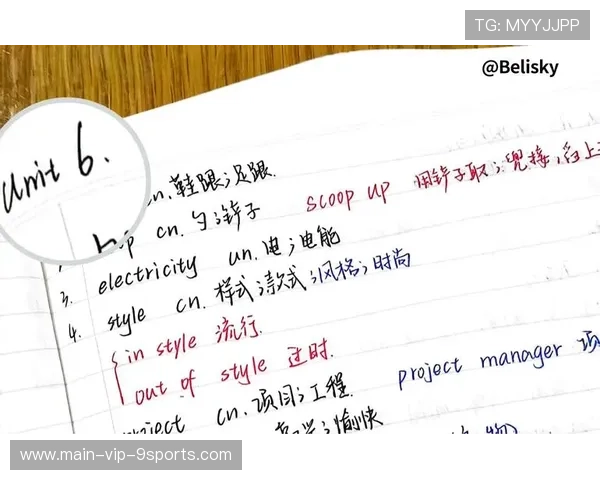 TG: MYYJJPP
@Belisky
unit 6.
n. 鞋跟;足跟
p cn. 勺;铲子 scoop up 用铲子取;兜接
3. electricity un. 电;电能
4. style cn. 样式;款式;风格;时尚
in style 流行
out of style 过时.
oject cn. 项目;工程. project manager 项
;愉快
www.main-vip-9sports.com